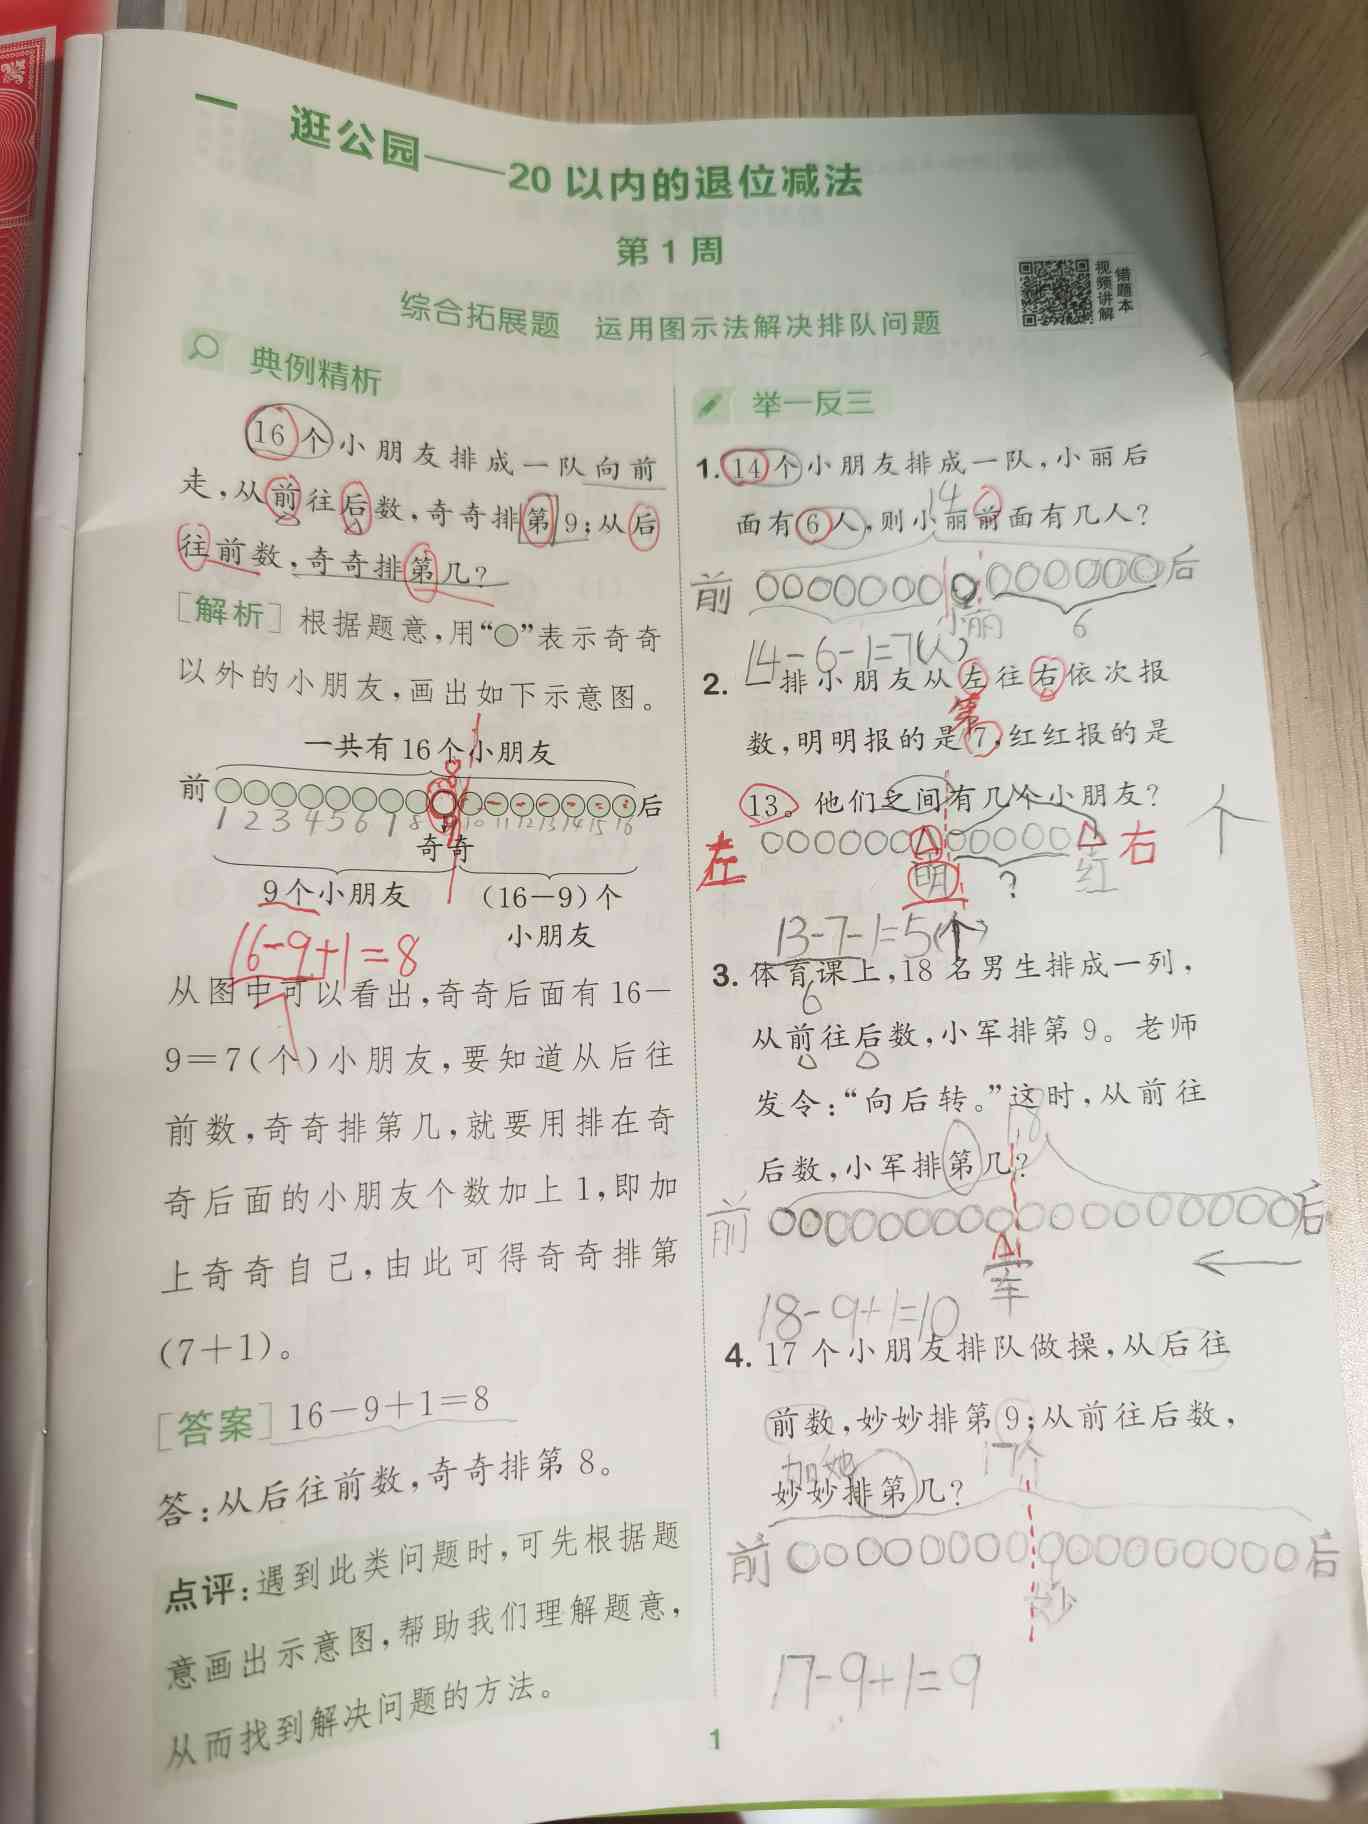 一 逛公园——20 以内的退位减法
第 1 周
综合拓展题 运用图示法解决排队问题
视频讲解
错题本
典例精析
16个小朋友排成一队向前
走,从前往后数,奇奇排第9;从后
往前数,奇奇排第几?
[解析] 根据题意,用“○”表示奇奇
以外的小朋友,画出如下示意图。
一共有16个小朋友
前 后
1 2 3 4 5 6 7 8 9 10 11 12 13 14 15 16
奇奇
9个小朋友 (16-9)个
小朋友
16-9+1=8
从图中可以看出,奇奇后面有16-
9=7(个)小朋友,要知道从后往
前数,奇奇排第几,就要用排在奇
奇后面的小朋友个数加上1,即加
上奇奇自己,由此可得奇奇排第
(7+1)。
[答案] 16-9+1=8
答:从后往前数,奇奇排第8。
点评:遇到此类问题时,可先根据题
意画出示意图,帮助我们理解题意,
从而找到解决问题的方法。
举一反三
1. 14个小朋友排成一队,小丽后
面有6人,则小丽前面有几人?
14
前 后
小丽 6
14-6-1=7(人)
2. 一排小朋友从左往右依次报
数,明明报的是7,红红报的是
第
13。他们之间有几个小朋友?
个
左 右
明 ? 红
13-7-1=5(个)
6
3. 体育课上,18名男生排成一列,
从前往后数,小军排第9。老师
发令:“向后转。”这时,从前往
后数,小军排第几?
18
前 后
军
18-9+1=10
4. 17个小朋友排队做操,从后往
前数,妙妙排第9;从前往后数,
妙妙排第几?
加她 17个
前 后
妙
17-9+1=9
1